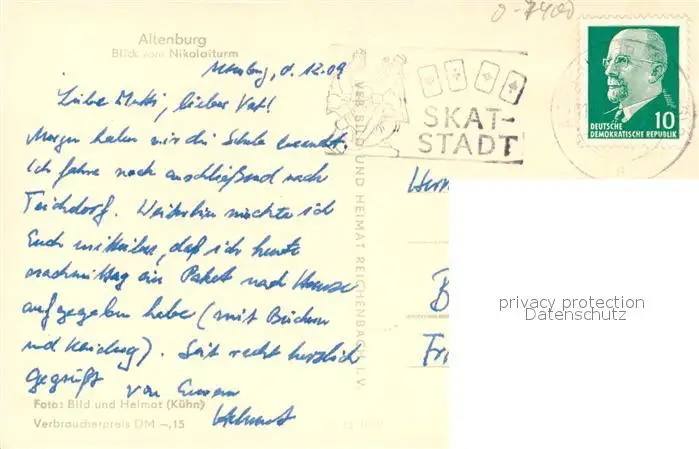 0-7400
Altenburg
Blick vom Nikolaiturm
Altenburg, d. 12.09
Liebe Mutti, lieber Vat!
Morgen haben wir die Schule beendet.
Ich fahre noch anschließend nach
Teichdorf. Weiterhin möchte ich
Euch mitteilen, daß ich heute
nachmittag ein Paket nach Hause
aufgegeben habe (mit Büchern
und Kleidung). Seit recht herzlich
gegrüßt von Eurem
Helmut
Foto: Bild und Heimat (Kühn)
Verbraucherpreis DM -,15
VEB BILD UND HEIMAT REICHENBACH I. V.
SKAT-
STADT
10
DEUTSCHE
DEMOKRATISCHE REPUBLIK
Herrn
B
Fri
privacy protection
Datenschutz